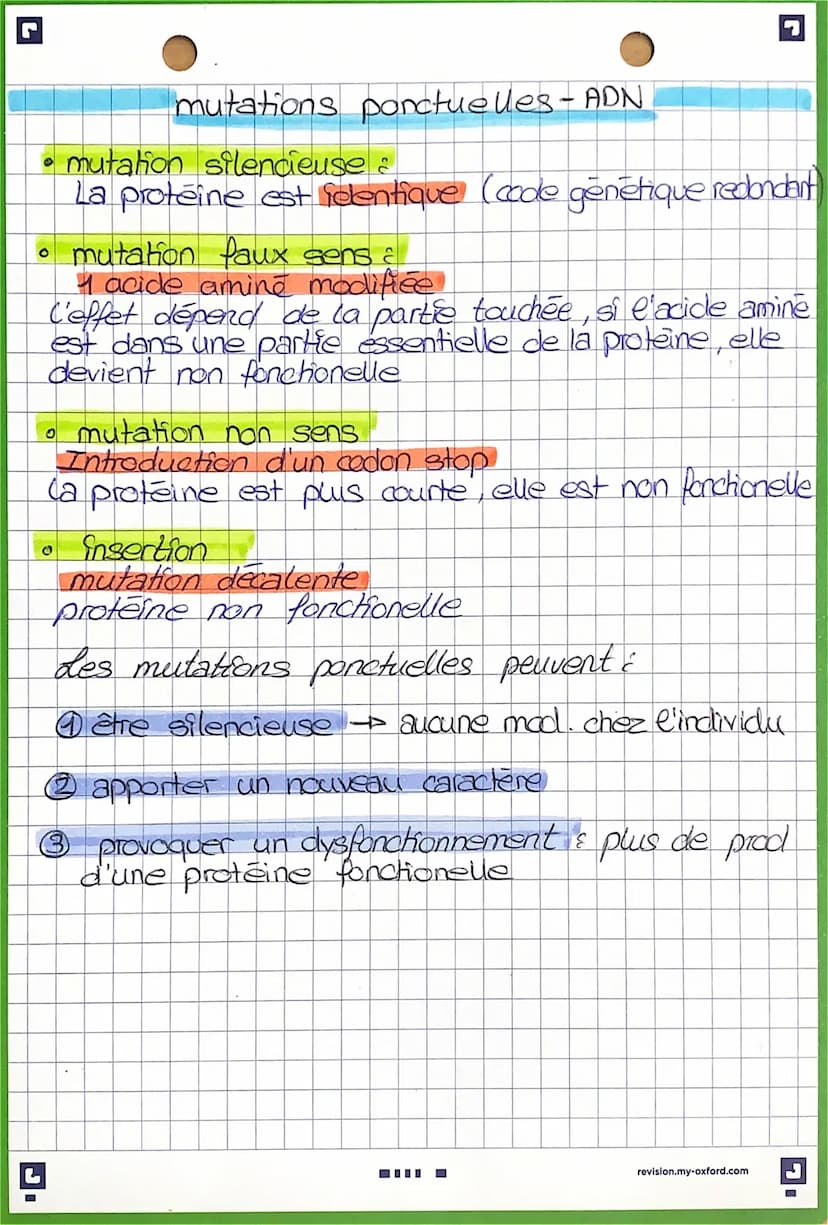 mutations ponctuelles - ADN
• mutation silencieuse :
La protéine est identique (code génétique redondant)
• mutation faux sens :
1 acide aminé modifiée
L'effet dépend de la partie touchée, si l'acide aminé
est dans une partie essentielle de la protéine, elle
devient non fonctionelle
• mutation non sens
Introduction d'un codon stop
La protéine est plus courte, elle est non fonctionelle
• insertion
mutation décalente
protéine non fonctionelle
Les mutations ponctuelles peuvent :
① être silencieuse → aucune mod. chez l'individu
② apporter un nouveau caractère
③ provoquer un dysfonctionnement : plus de prod
d'une protéine fonctionelle
revision.my-oxford.com